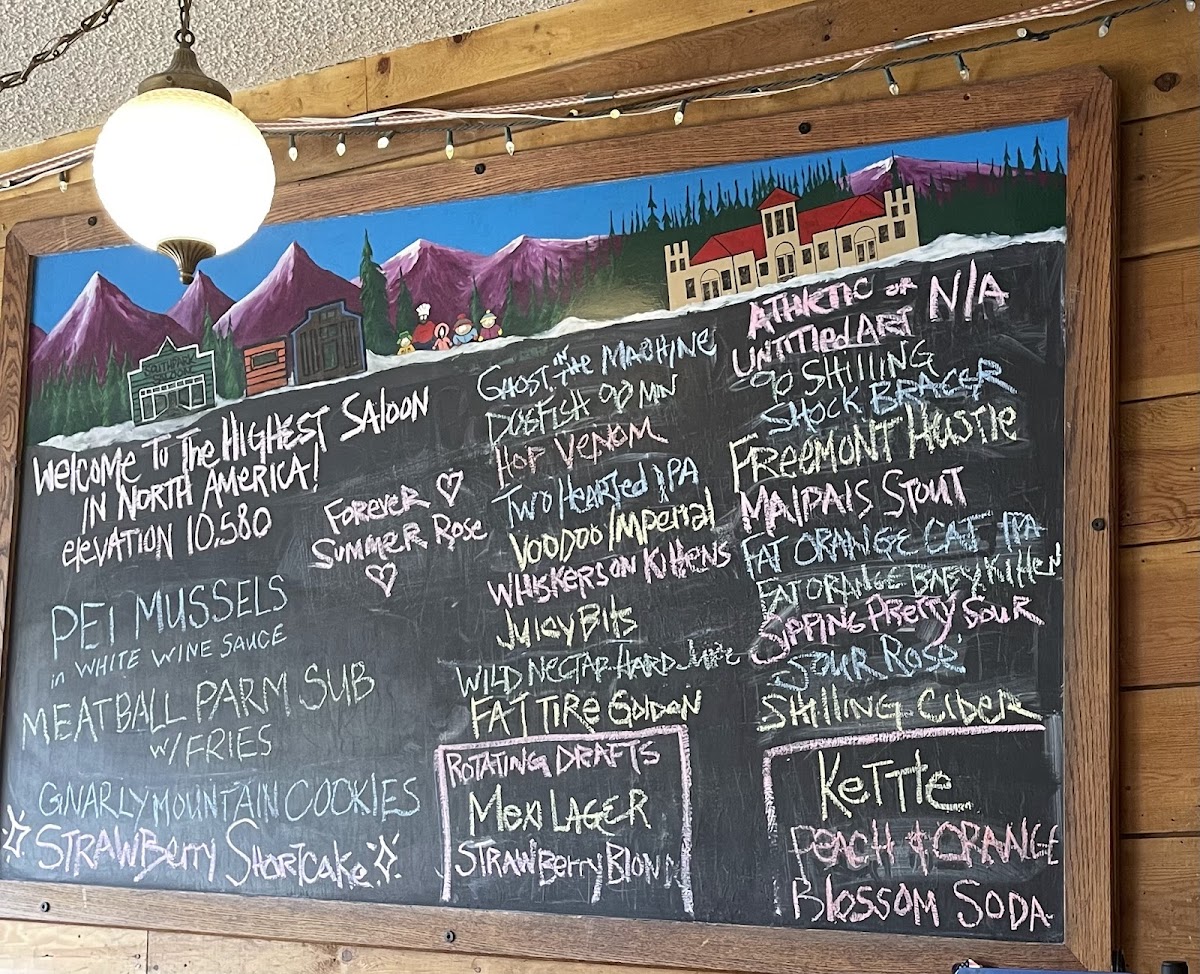 SOUTHPARK
WELCOME TO THE HIGHEST SALOON
IN NORTH AMERICA!
ELEVATION 10,580
FOREVER
SUMMER ROSE
PEI MUSSELS
in WHITE WINE SAUCE
MEATBALL PARM SUB
W/FRIES
GNARLY MOUNTAIN COOKIES
STRAWBERRY SHORTCAKE
GHOST IN THE MACHINE
DOGFISH 90 MIN
HOP VENOM
TWO HEARTED IPA
VOODOO IMPERIAL
WHISKERS ON KITTENS
JUICY BITS
WILD NECTAR HARD
FAT TIRE GOLDEN
ROTATING DRAFTS
MEXI LAGER
STRAWBERRY BLOND
ATHLETIC or N/A
UNTITLED ART
90 SHILLING
SHOCK BRACER
FREEMONT HUSTLE
MALPAIS STOUT
FAT ORANGE CAT IPA
FAT ORANGE BABY KITTEN
SIPPING PRETTY SOUR
SOUR ROSÉ
SHILLING CIDER
KETTLE
PEACH & ORANGE
BLOSSOM SODA